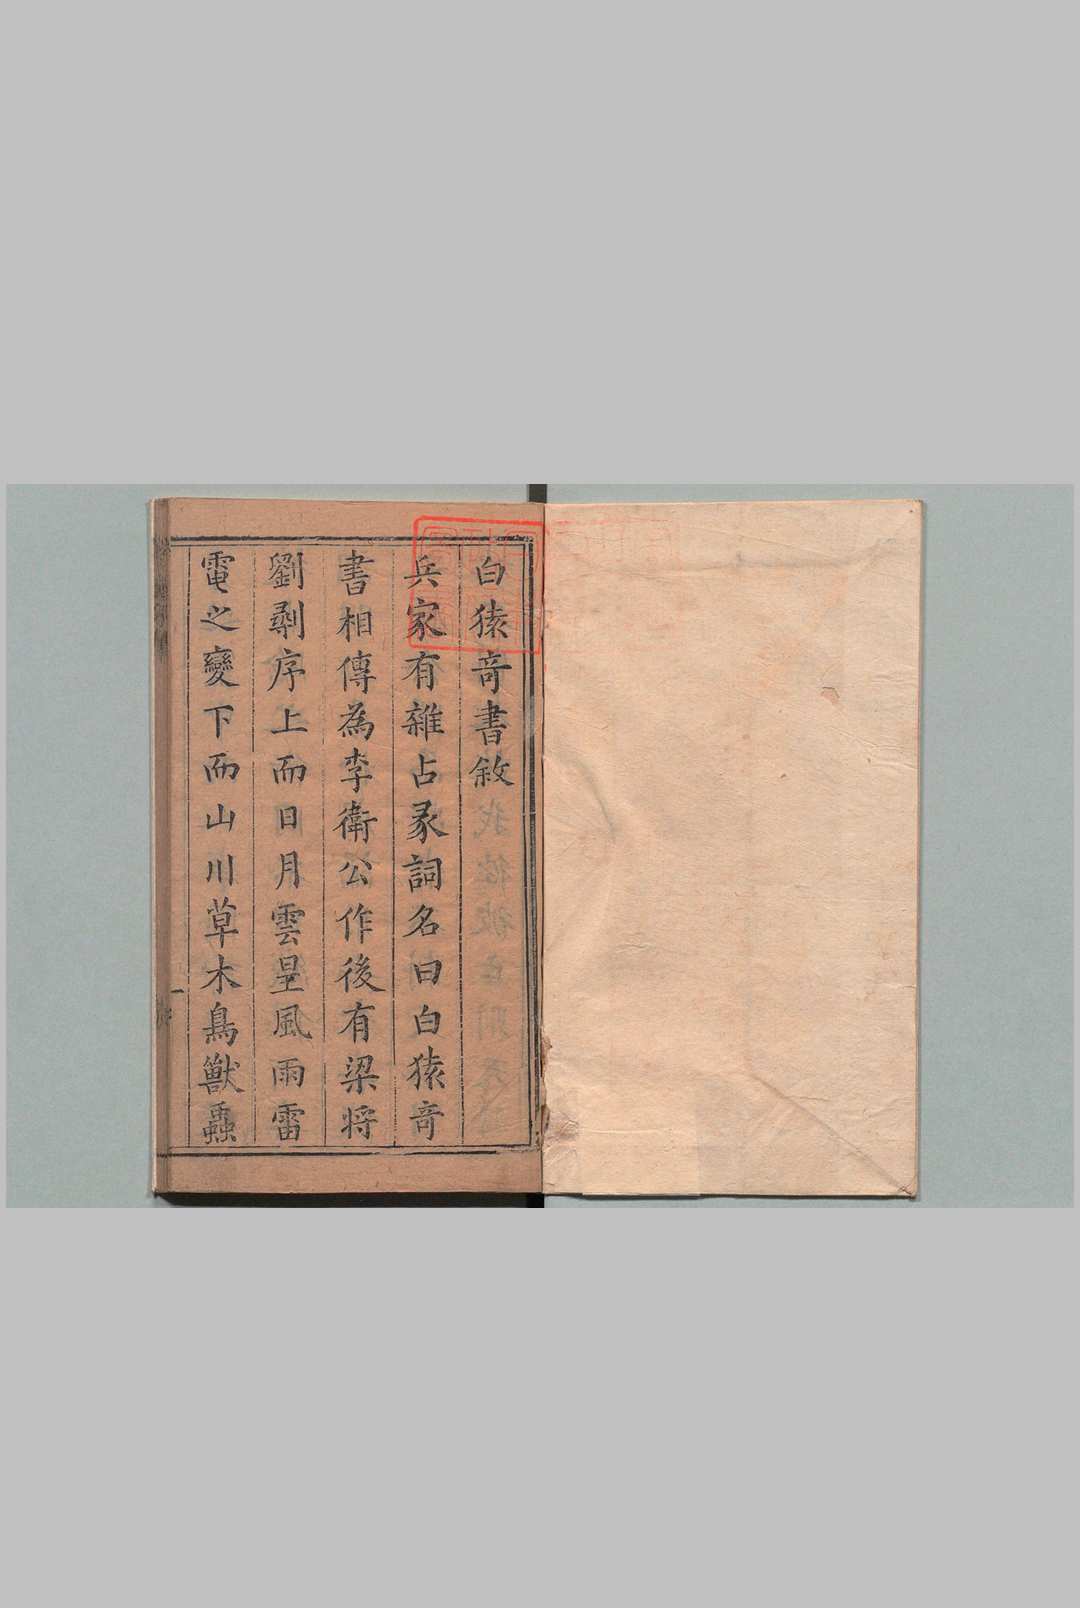 白猿竒書敘
兵家有雜占彖詞名曰白猿竒
書相傳為李衛公作後有梁將
劉鄩序上而日月雲星風雨雷
電之變下而山川草木鳥獸蟲